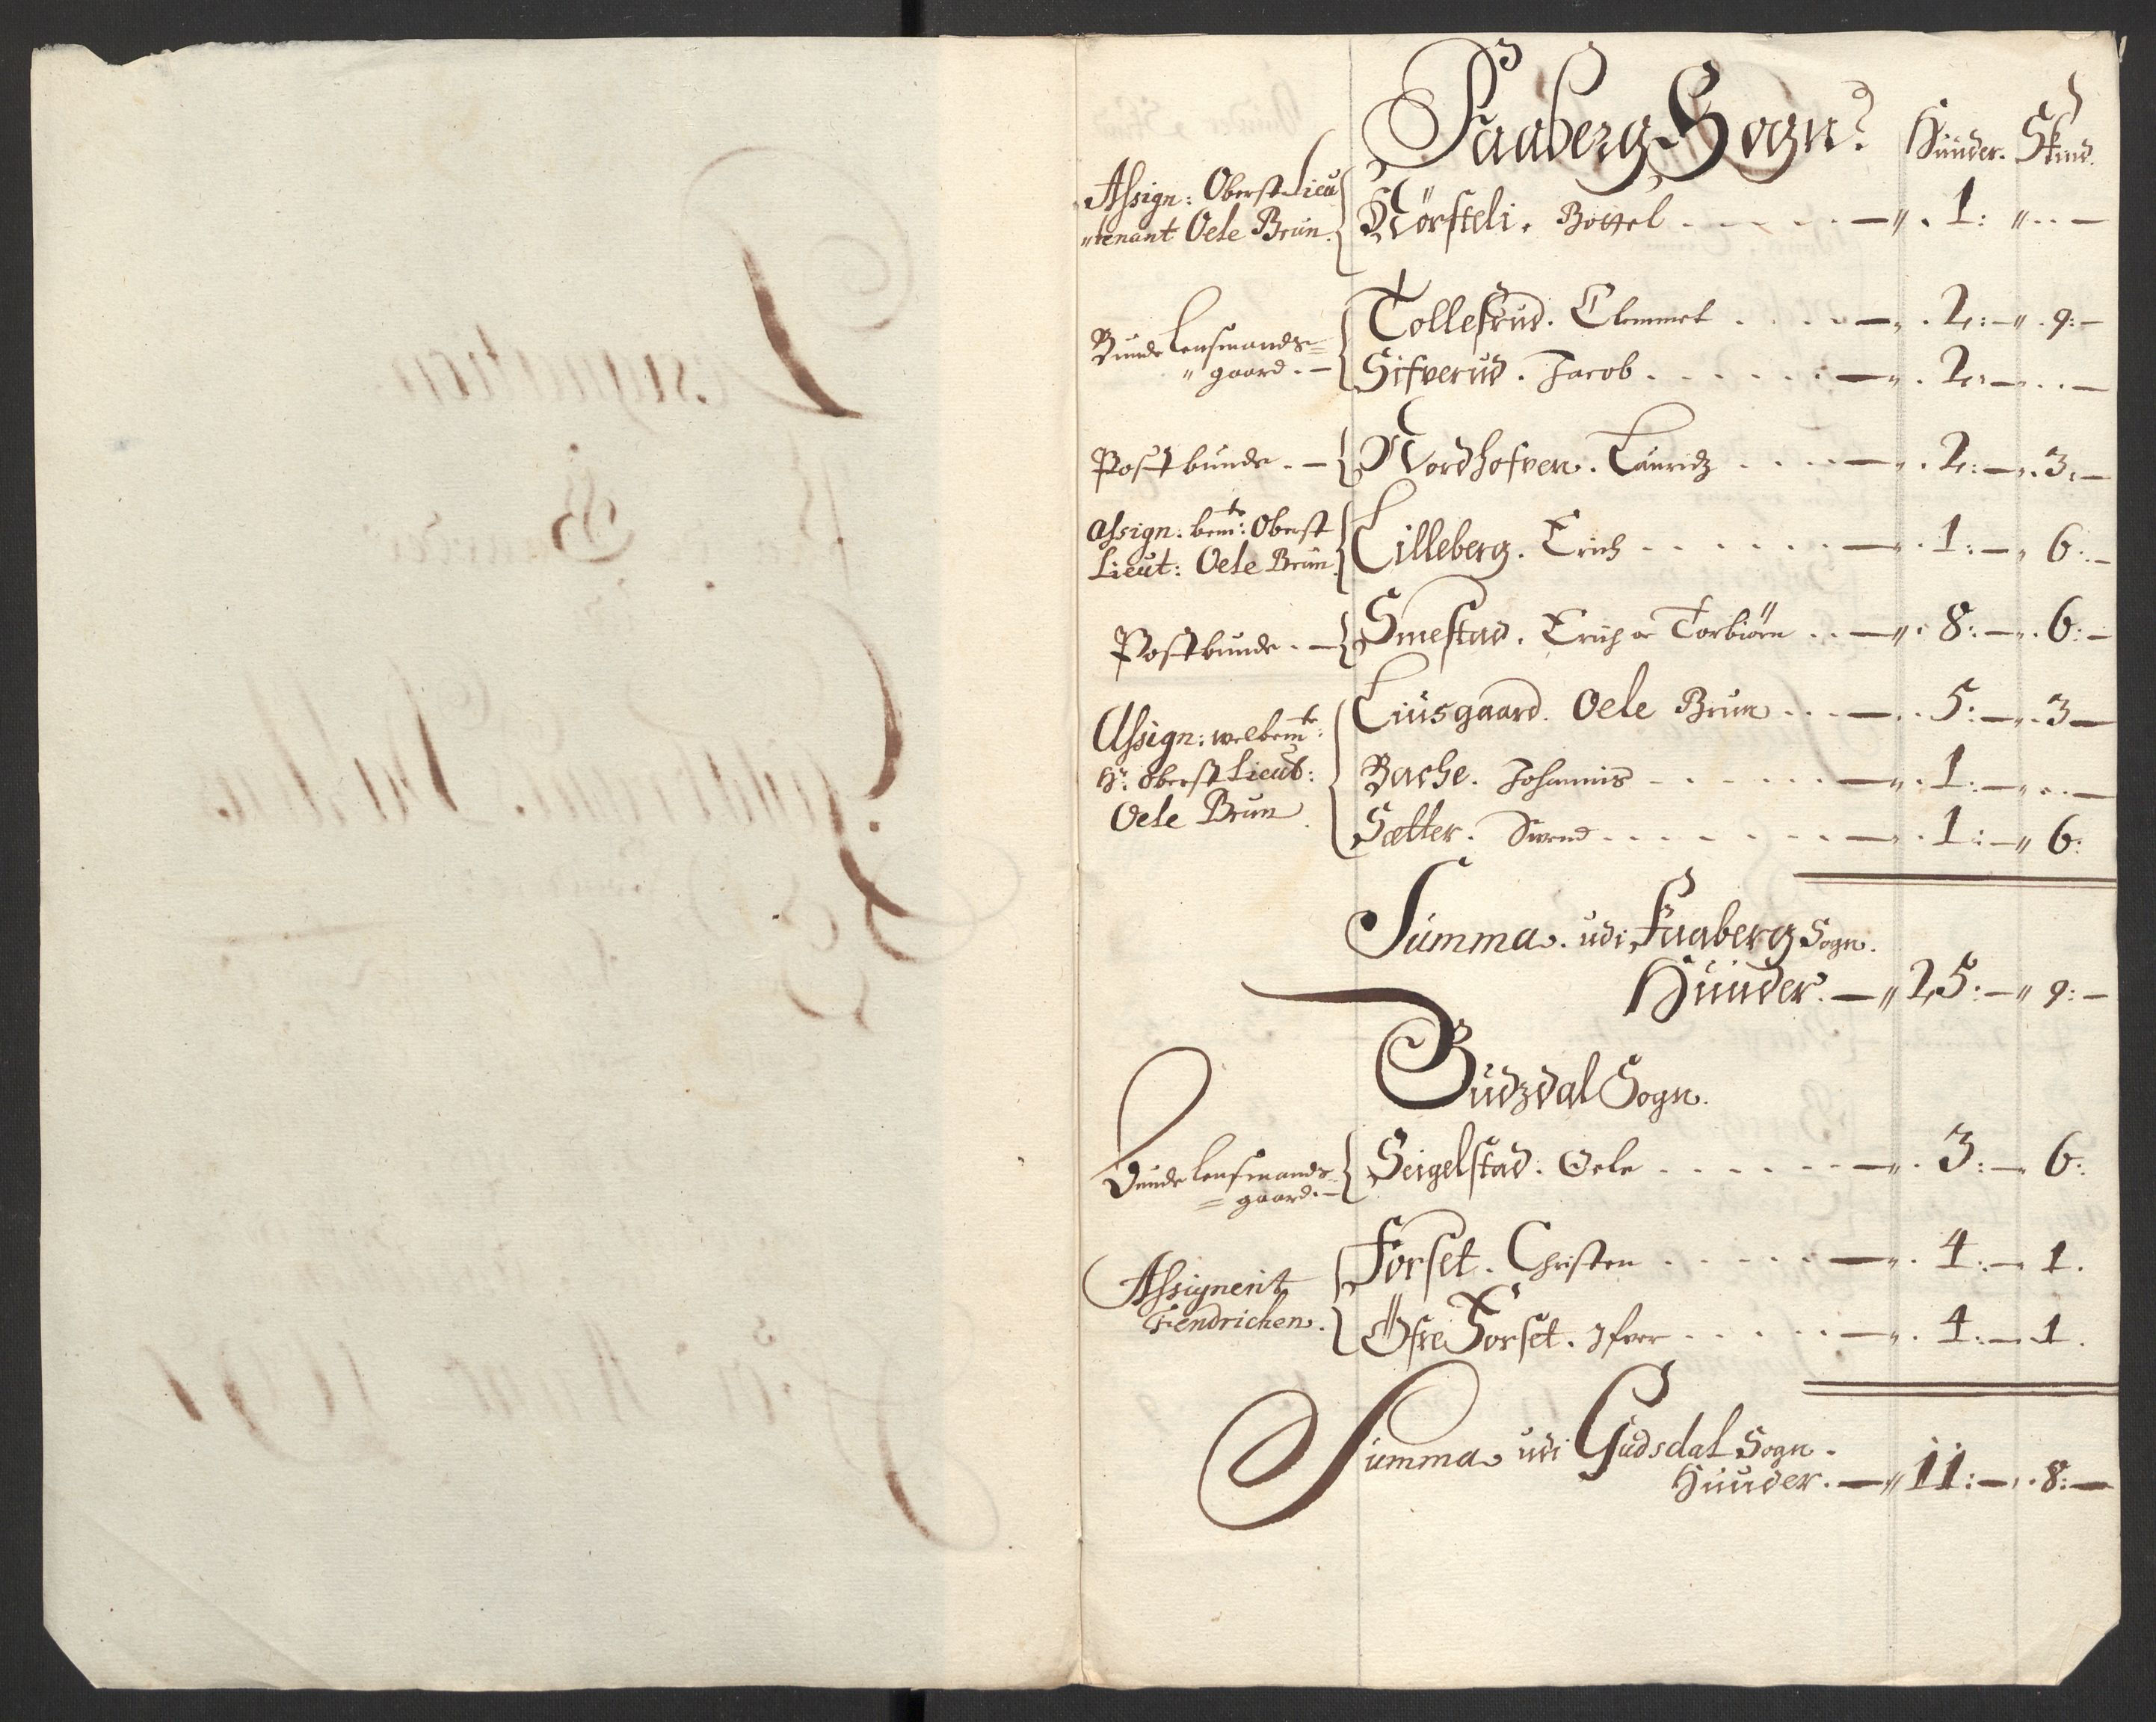 Faaberg Sogn
Hunder. Skind.
Assign: Oberst Lieu
"tenant Oele Brun. Nörsteli. Bottel . . . . — " . 1: " . . —
Bunde Lensmands=
" gaard. — Tollefrud. Clemmet . . . . — . 2: — " . 9: —
Sifverud. Jacob . . . . . . — . 2. — . . —
Postbunde. — Nordhofven. Lauridz . . . . — . 2: — . 3. —
Assign: bemte: Oberst
Lieut: Oele Brun Lilleberg. Erich . . . . . . — . 1: — 6: —
Postbunde. — Smestad. Erich oc Torbiörn . . — " . 8: — . 6: —
Assign: welbemte:
Hr: Oberst Lieut:
Oele Brun. Liusgaard. Oele Brun . . . — . . 5: — . 3 —
Bache. Johannis . . . . . — . 1: — . . . —
Sætter. Svend . . . . . . . — . 1: — " 6:
Summa. udi Faaberg Sogn.
Hunder. — " 25: — " 9: —
Gudzdal Sogn.
Bunde Lensmands=
= gaard. — Seigelstad. Oele . . . . . . — . 3: — 6:
Assignerit
Fendrichen. Forset. Christen . . . . . . — . 4: — 1.
Öfre Forset. Ifver . . . . . — . 4: — 1.
Summa udi Gudsdal Sogn.
Hunder. — " 11: — . 8: —